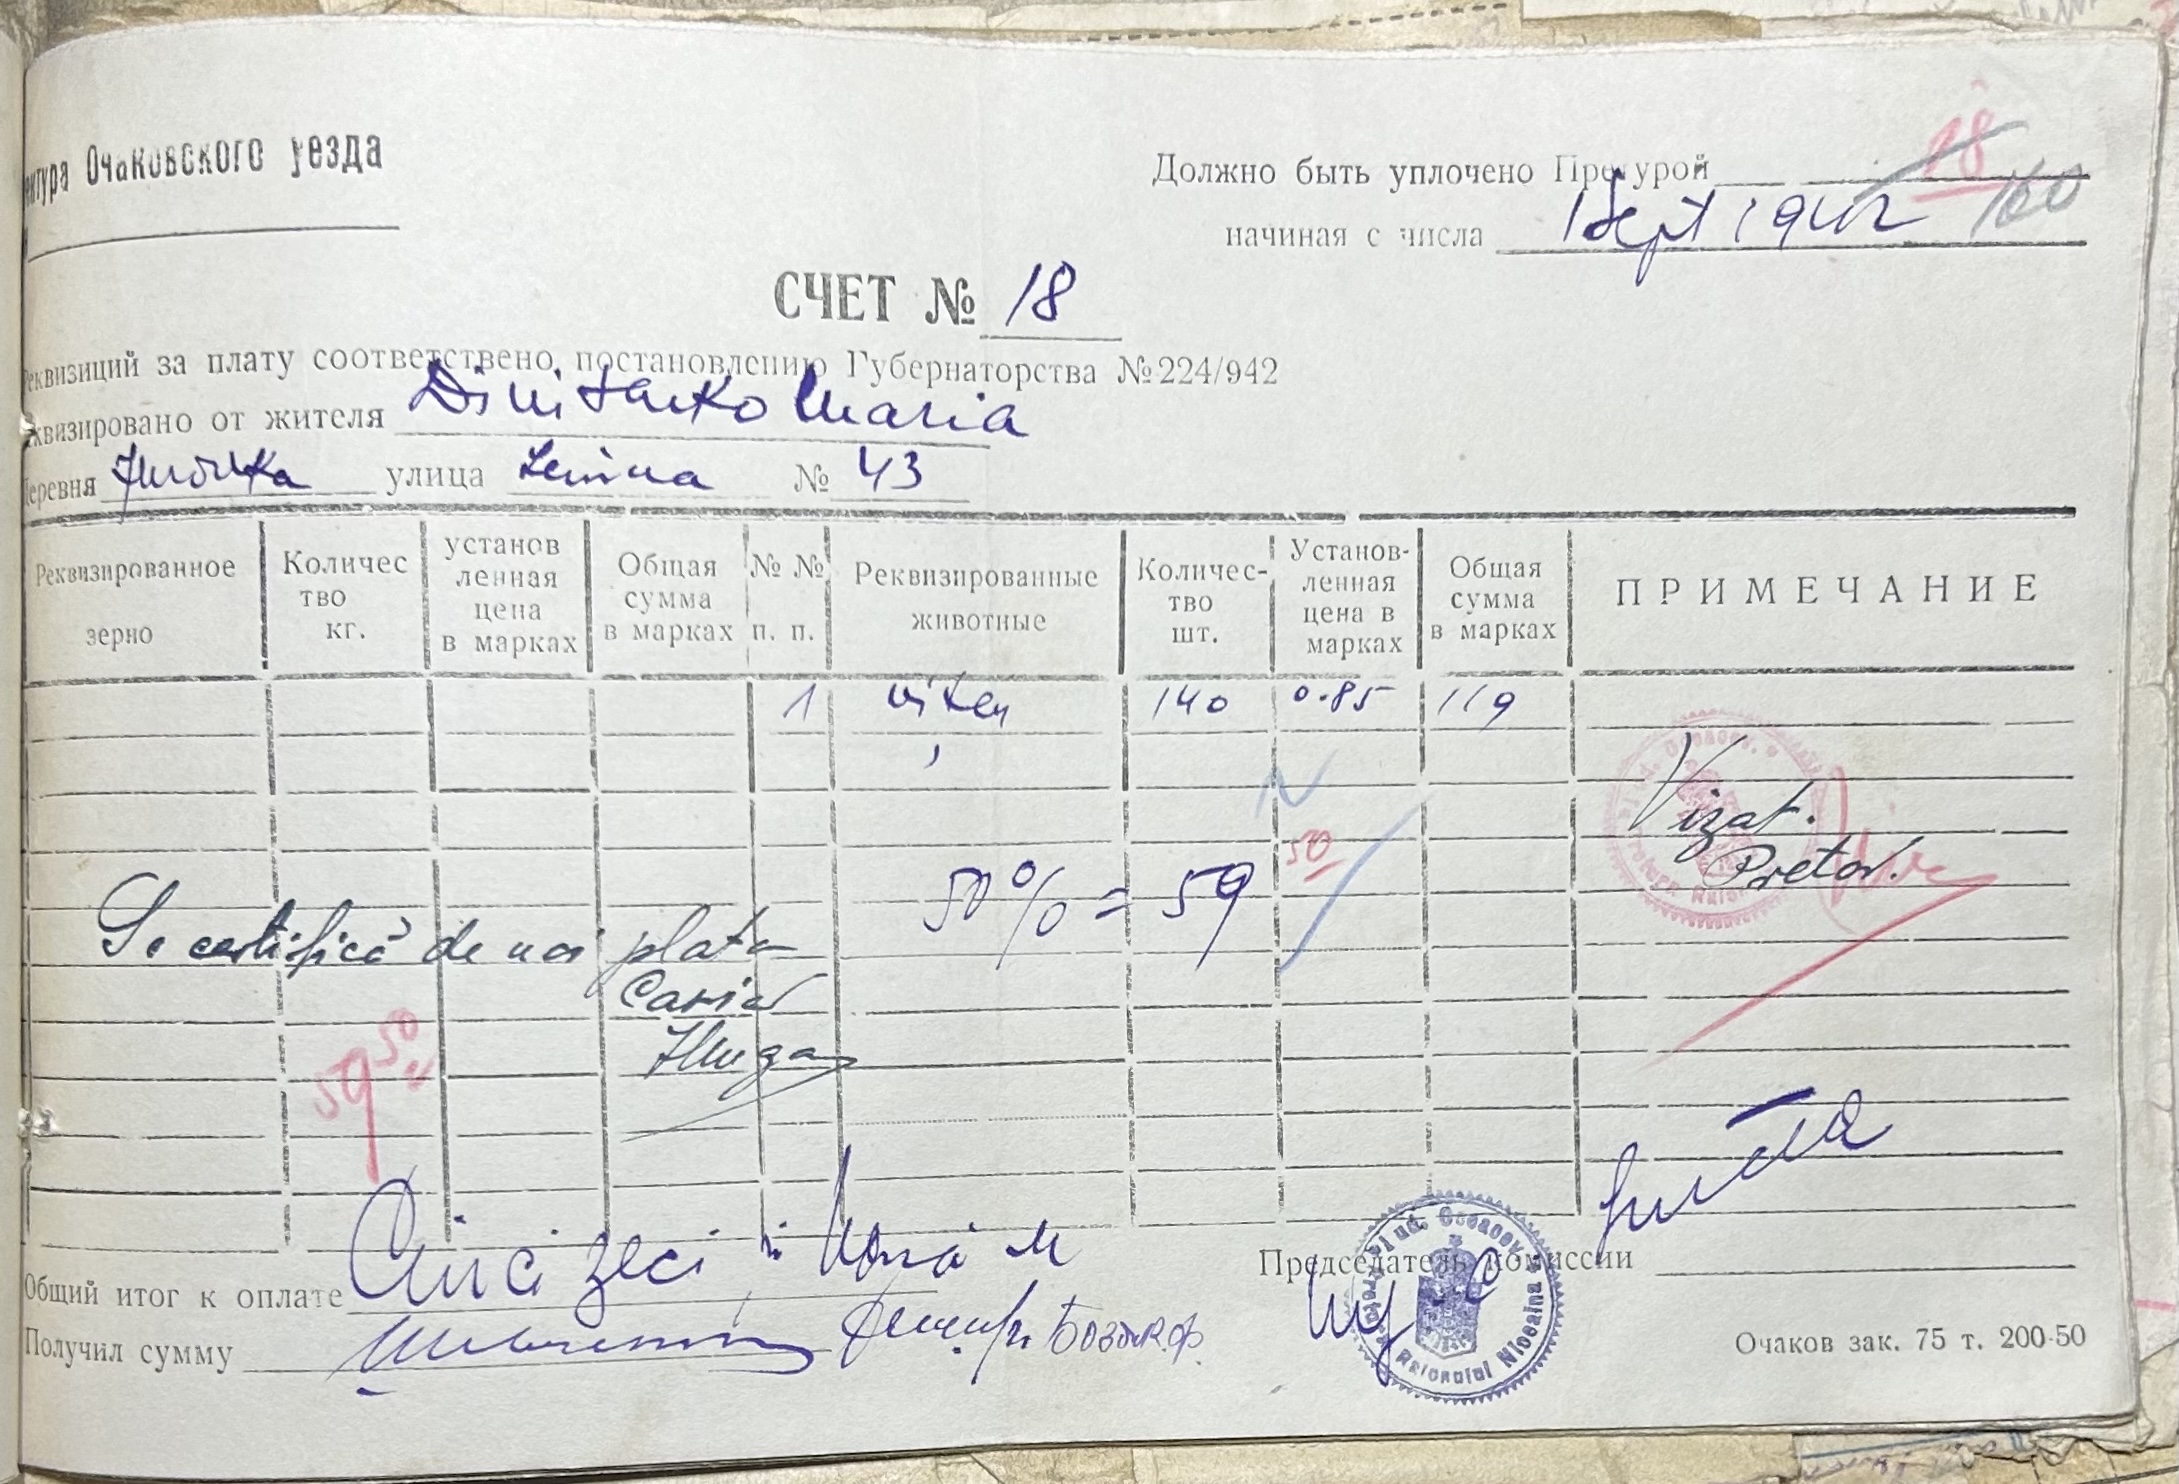 ктура Очаковского уезда
Должно быть уплочено Претурой
18
начиная с числа 1 Sept 1942 160
СЧЕТ № 18
Реквизиций за плату соответствено постановлению Губернаторства №224/942
квизировано от жителя Dimitenko Maria
Деревня улица Lenina № 43
Реквизированное зерно
Количес тво кг.
установ ленная цена в марках
Общая сумма в марках
№ № п. п.
Реквизированные животные
Количес- тво шт.
Установ- ленная цена в марках
Общая сумма в марках
ПРИМЕЧАНИЕ
1 viței 140 0.85 119
Vizat.
Pretor.
50% = 59 50
Se certifică de noi plata
Casier
59 50
Общий итог к оплате Cinci zeci și nouă M
Председатель комиссии
Получил сумму
Очаков зак. 75 т. 200-50